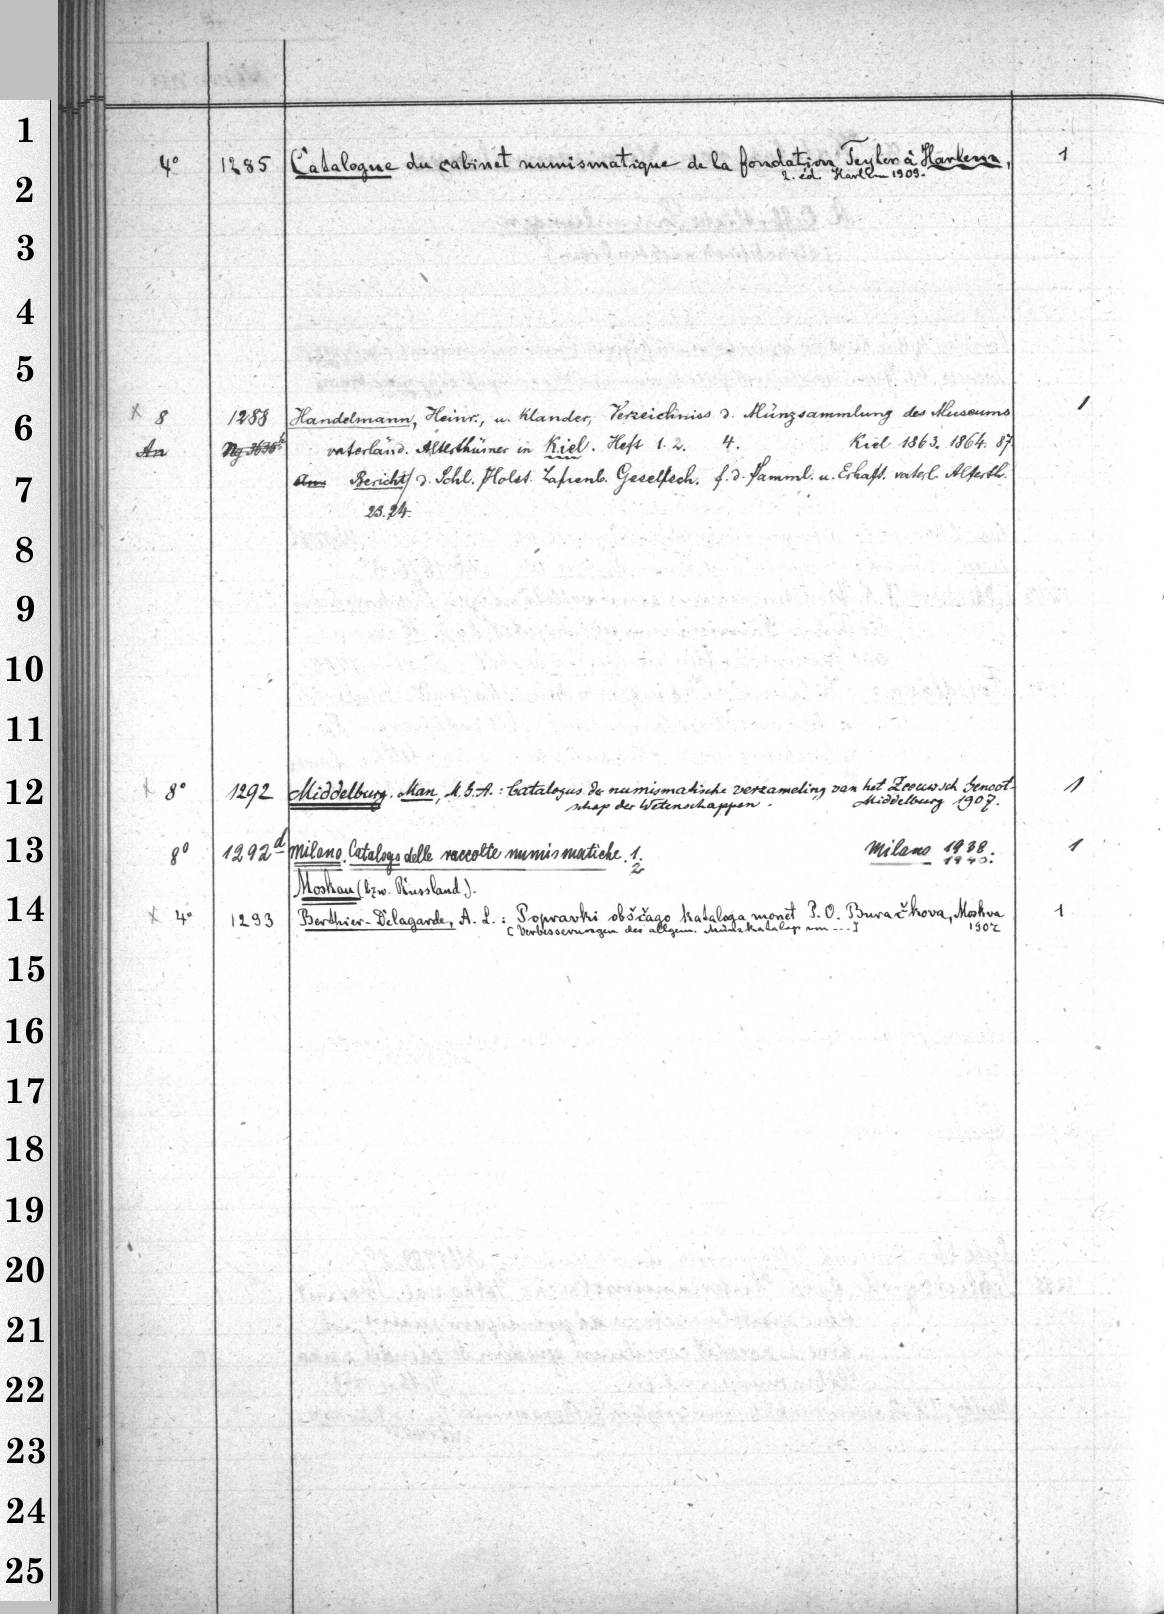 1
2
3
4
5
6
7
8
9
10
11
12
13
14
15
16
17
18
19
20
21
22
23
24
25
4° 1285 Catalogue du cabinet numismatique de la fondation Teyler à Harlem, 1
2. éd. Harlem 1909.
x 8 1288 Handelmann, Heinr., u. Klander, Verzeichniss d. Münzsammlung des Museums 1
An Ng 3636 b vaterländ. Alterthümer in Kiel. Heft 1. 2. 4. Kiel 1863. 1864. 87
aus Bericht d. Schl. Holst. Lauenb. Gesellsch. f. d. Samml. u. Erhalt. vaterl. Alterth.
23. 24.
x 8° 1292 Middelburg. Man, M. G. A.: Catalogus de numismatische verzameling van het Zeeuwsch Genoot- 1
schap der Wetenschappen. Middelburg 1907.
8° 1292 d Milano. Catalogo delle raccolte numismatiche. 1. Milano 1938. 1
2 1940.
Moskau (bzw. Russland).
x 4° 1293 Berthier-Delagarde, A. L.: Popravki obščago kataloga monet P. O. Buračkova, Moskva 1
[Verbesserungen des allgem. Münzkatalogs von ---] 1907